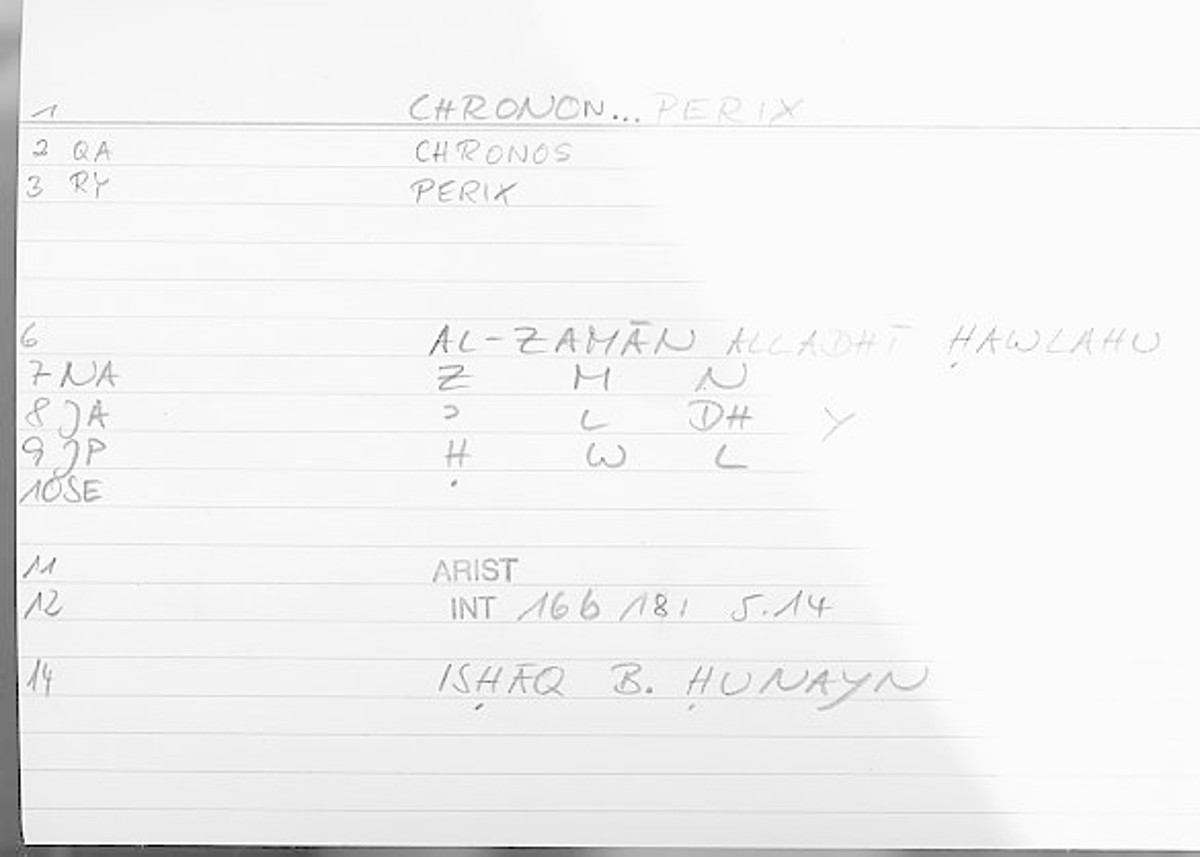 1 CHRONON... PERIX
2 QA CHRONOS
3 RY PERIX
6 AL-ZAMĀN ALLADHĪ ḤAWLAHU
7 NA Z M N
8 JA ɔ L DH Y
9 JP Ḥ W L
10 SE
11 ARIST
12 INT 16 b 18; 5.14
14 ISḤĀQ B. ḤUNAYN